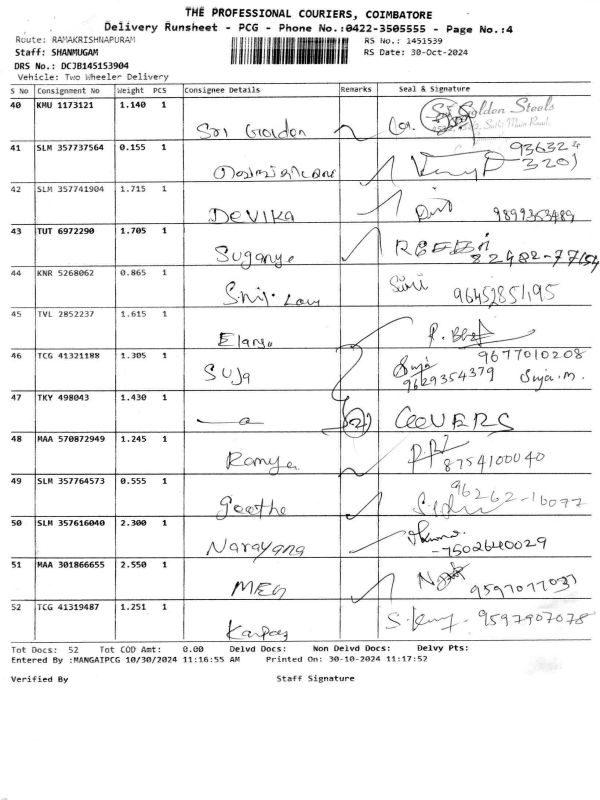 THE PROFESSIONAL COURIERS, COIMBATORE
Delivery Runsheet - PCG - Phone No.:0422-3505555 - Page No.:4
Route: RAMAKRISHNAPURAM
RS No.: 1451539
Staff: SHANMUGAM
RS Date: 30-Oct-2024
DRS No.: DCJB145153904
Vehicle: Two Wheeler Delivery
S No Consignment No Weight PCS Consignee Details Remarks Seal & Signature
40 KMU 1173121 1.140 1
Golden Steels
Main Road,
41 SLM 357737564 0.155 1
936324
3201
42 SLM 357741904 1.715 1
DEVIKA 9899353489
43 TUT 6972290 1.705 1
Suganya
82982-77154
44 KNR 5268062 0.865 1
9645285195
45 TVL 2852237 1.615 1
46 TCG 41321188 1.305 1
9677010208
SUJA Suja Suja.m.
9629354379
47 TKY 498043 1.430 1
48 MAA 570872949 1.245 1
Ramya 8754100040
49 SLM 357764573 0.555 1
Geetha 96262-16077
50 SLM 357616040 2.300 1
Narayana
-7502640029
51 MAA 301866655 2.550 1
MEG 9597077031
52 TCG 41319487 1.251 1
9597907078
Tot Docs: 52 Tot COD Amt: 0.00 Delvd Docs: Non Delvd Docs: Delvy Pts:
Entered By :MANGAIPCG 10/30/2024 11:16:55 AM Printed On: 30-10-2024 11:17:52
Verified By Staff Signature